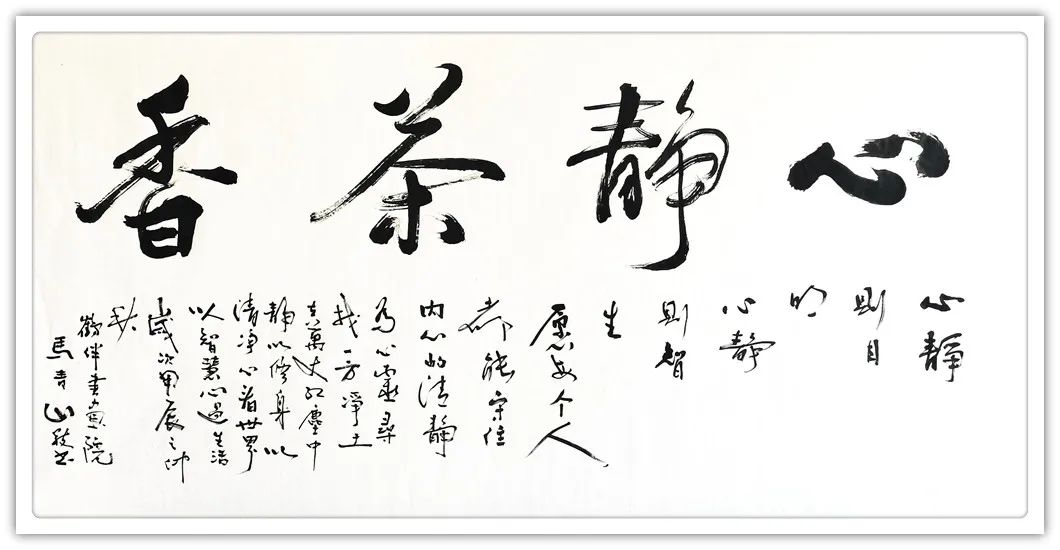 心静茶香
心静
則目
明
心静
則智
生
愿每个人
都能守住
内心的清静
為心靈尋
找一方净土
在萬丈红塵中
静以修身以
清净心看世界
以智慧心過生活
歲次甲辰之仲
秋
鶴伴書畫院
馬青山